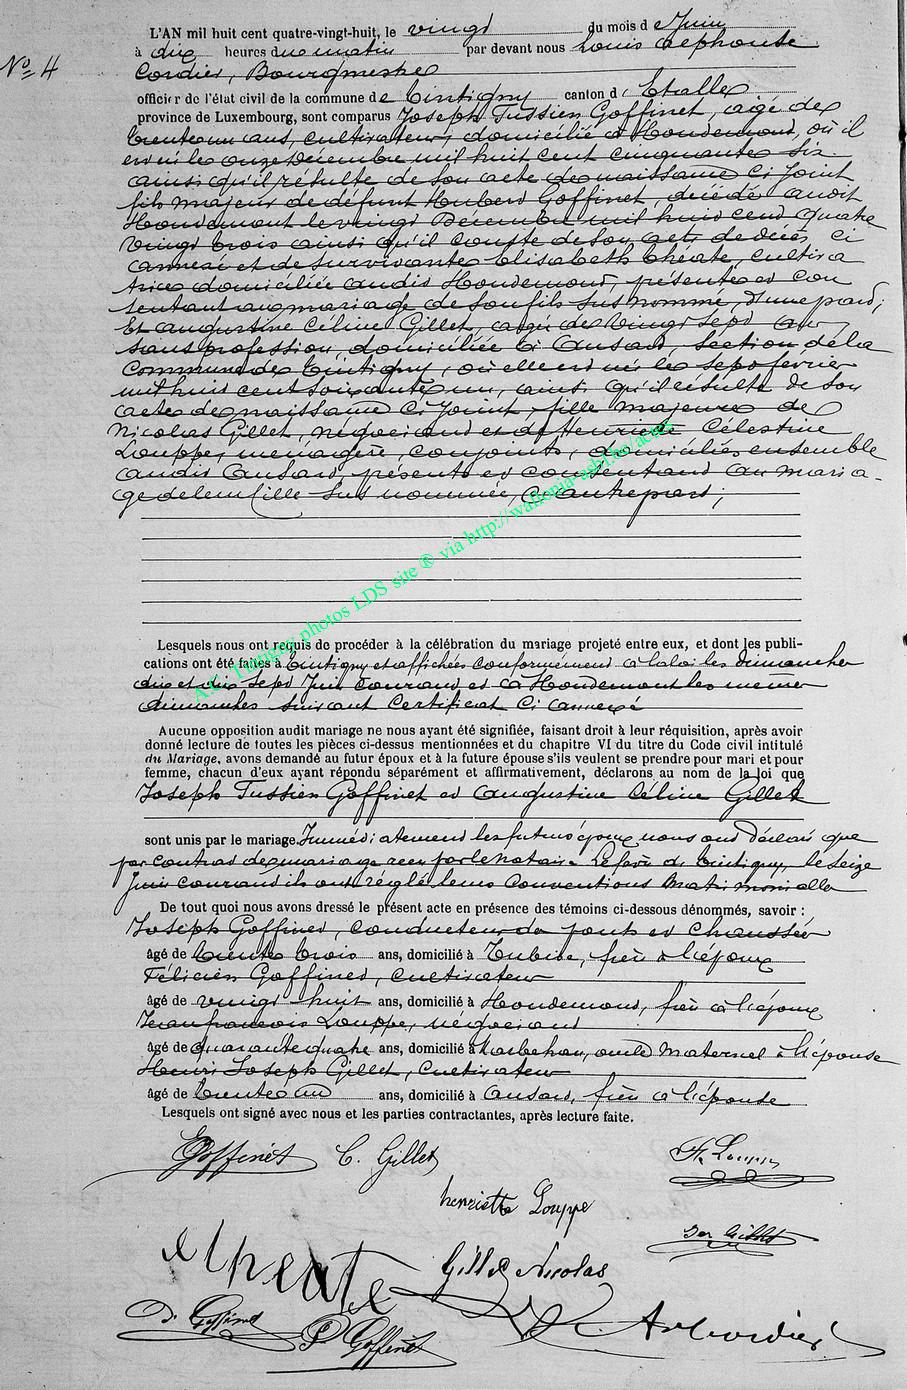 L'AN mil huit cent quatre-vingt-huit, le vingt du mois de Juin
à dix heures du matin par devant nous Louis Alphonse
No 4
Cordier, Bourgmestre
officier de l'état civil de la commune de Tintigny canton d'Etalle
province de Luxembourg, sont comparus Joseph Jussien Goffinet, agé de
trente un ans, cultivateur, domicilié à Houdemont, où il
est né le onze Décembre mil huit cent cinquante six
ainsi qu'il résulte de son acte de naissance ci joint
fils majeur de défunt Hubert Goffinet, décédé audit
Houdemont le vingt Décembre mil huit cent quatre
vingt trois ainsi qu'il conste de son acte de décès ci
annexé et de survivante Elisabeth Théate, cultiva
trice domiciliée audit Houdemont, présente et con
sentant au mariage de son fils sus nommé, d'une part;
Et Augustine Céline Gillet, agée de vingt sept ans
sans profession, domiciliée à Ansart, section de la
Commune de Tintigny, où elle est née le sept février
mil huit cent soixante un, ainsi qu'il résulte de son
acte de naissance ci joint, fille majeure de
Nicolas Gillet, négociant et de Henriette Célestine
Louppe, ménagère, conjoints, domiciliés ensemble
audit Ansart présents et consentant au maria-
ge de leur fille sus nommée, d'autre part;
Lesquels nous ont requis de procéder à la célébration du mariage projeté entre eux, et dont les publi-
cations ont été faites à Tintigny et affichées conformément à la loi les dimanches
dix et dix sept Juin courant et à Houdemont les mêmes
dimanches suivant certificat ci annexé
Aucune opposition audit mariage ne nous ayant été signifiée, faisant droit à leur réquisition, après avoir
donné lecture de toutes les pièces ci-dessus mentionnées et du chapitre VI du titre du Code civil intitulé
du Mariage, avons demandé au futur époux et à la future épouse s'ils veulent se prendre pour mari et pour
femme, chacun d'eux ayant répondu séparément et affirmativement, déclarons au nom de la loi que
Joseph Jussien Goffinet et Augustine Céline Gillet
sont unis par le mariage. Immédiatement les futurs époux nous ont déclaré que
par contrat de mariage reçu par le Notaire Lefèvre de Tintigny, le seize
Juin courant ils ont réglé leurs conventions matrimonielles
De tout quoi nous avons dressé le présent acte en présence des témoins ci-dessous dénommés, savoir :
Joseph Goffinet, conducteur de ponts et chaussées
âgé de trente trois ans, domicilié à Tubise, frère à l'époux
Félicien Goffinet, cultivateur
âgé de vingt huit ans, domicilié à Houdemont, frère à l'époux
Jean françois Louppe, négociant
âgé de quarante quatre ans, domicilié à Marbehan, oncle maternel à l'épouse
Henri Joseph Gillet, Cultivateur
âgé de trente un ans, domicilié à Ansart, frère à l'épouse
Lesquels ont signé avec nous et les parties contractantes, après lecture faite.
Goffinet C. Gillet Louppe
henriette Louppe
Gillet
e theate Gillet Nicolas
Goffinet Goffinet Cordier
A.C. Tintigny photos LDS site ® via http://wallonia-asbl.be/actes